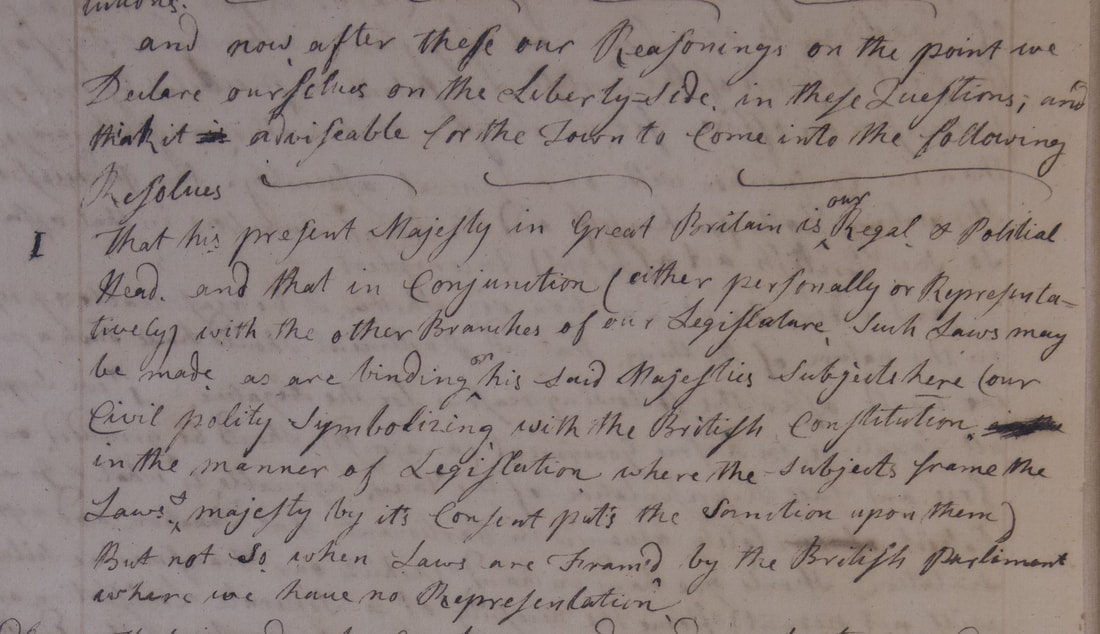 and now after these our Reasonings on the point we
Declare ourselves on the Liberty=Side. in these Questions, and
think it adviseable for the Town to Come into the following
Resolves
I That his present Majesty in Great Britain is our Regal & Political
Head. and that in Conjunction (either personally or Representa=
tively) with the other Branches of our Legislature Such Laws may
be made as are binding on his said Majesties Subjects here (our
Civil polity Symbolizing with the British Constitution
in the manner of Legislation where the Subjects frame the
Laws & majesty by it's Consent put's the Sanction upon them)
But not So when Laws are Fram'd by the British Parliment
where we have no Representation